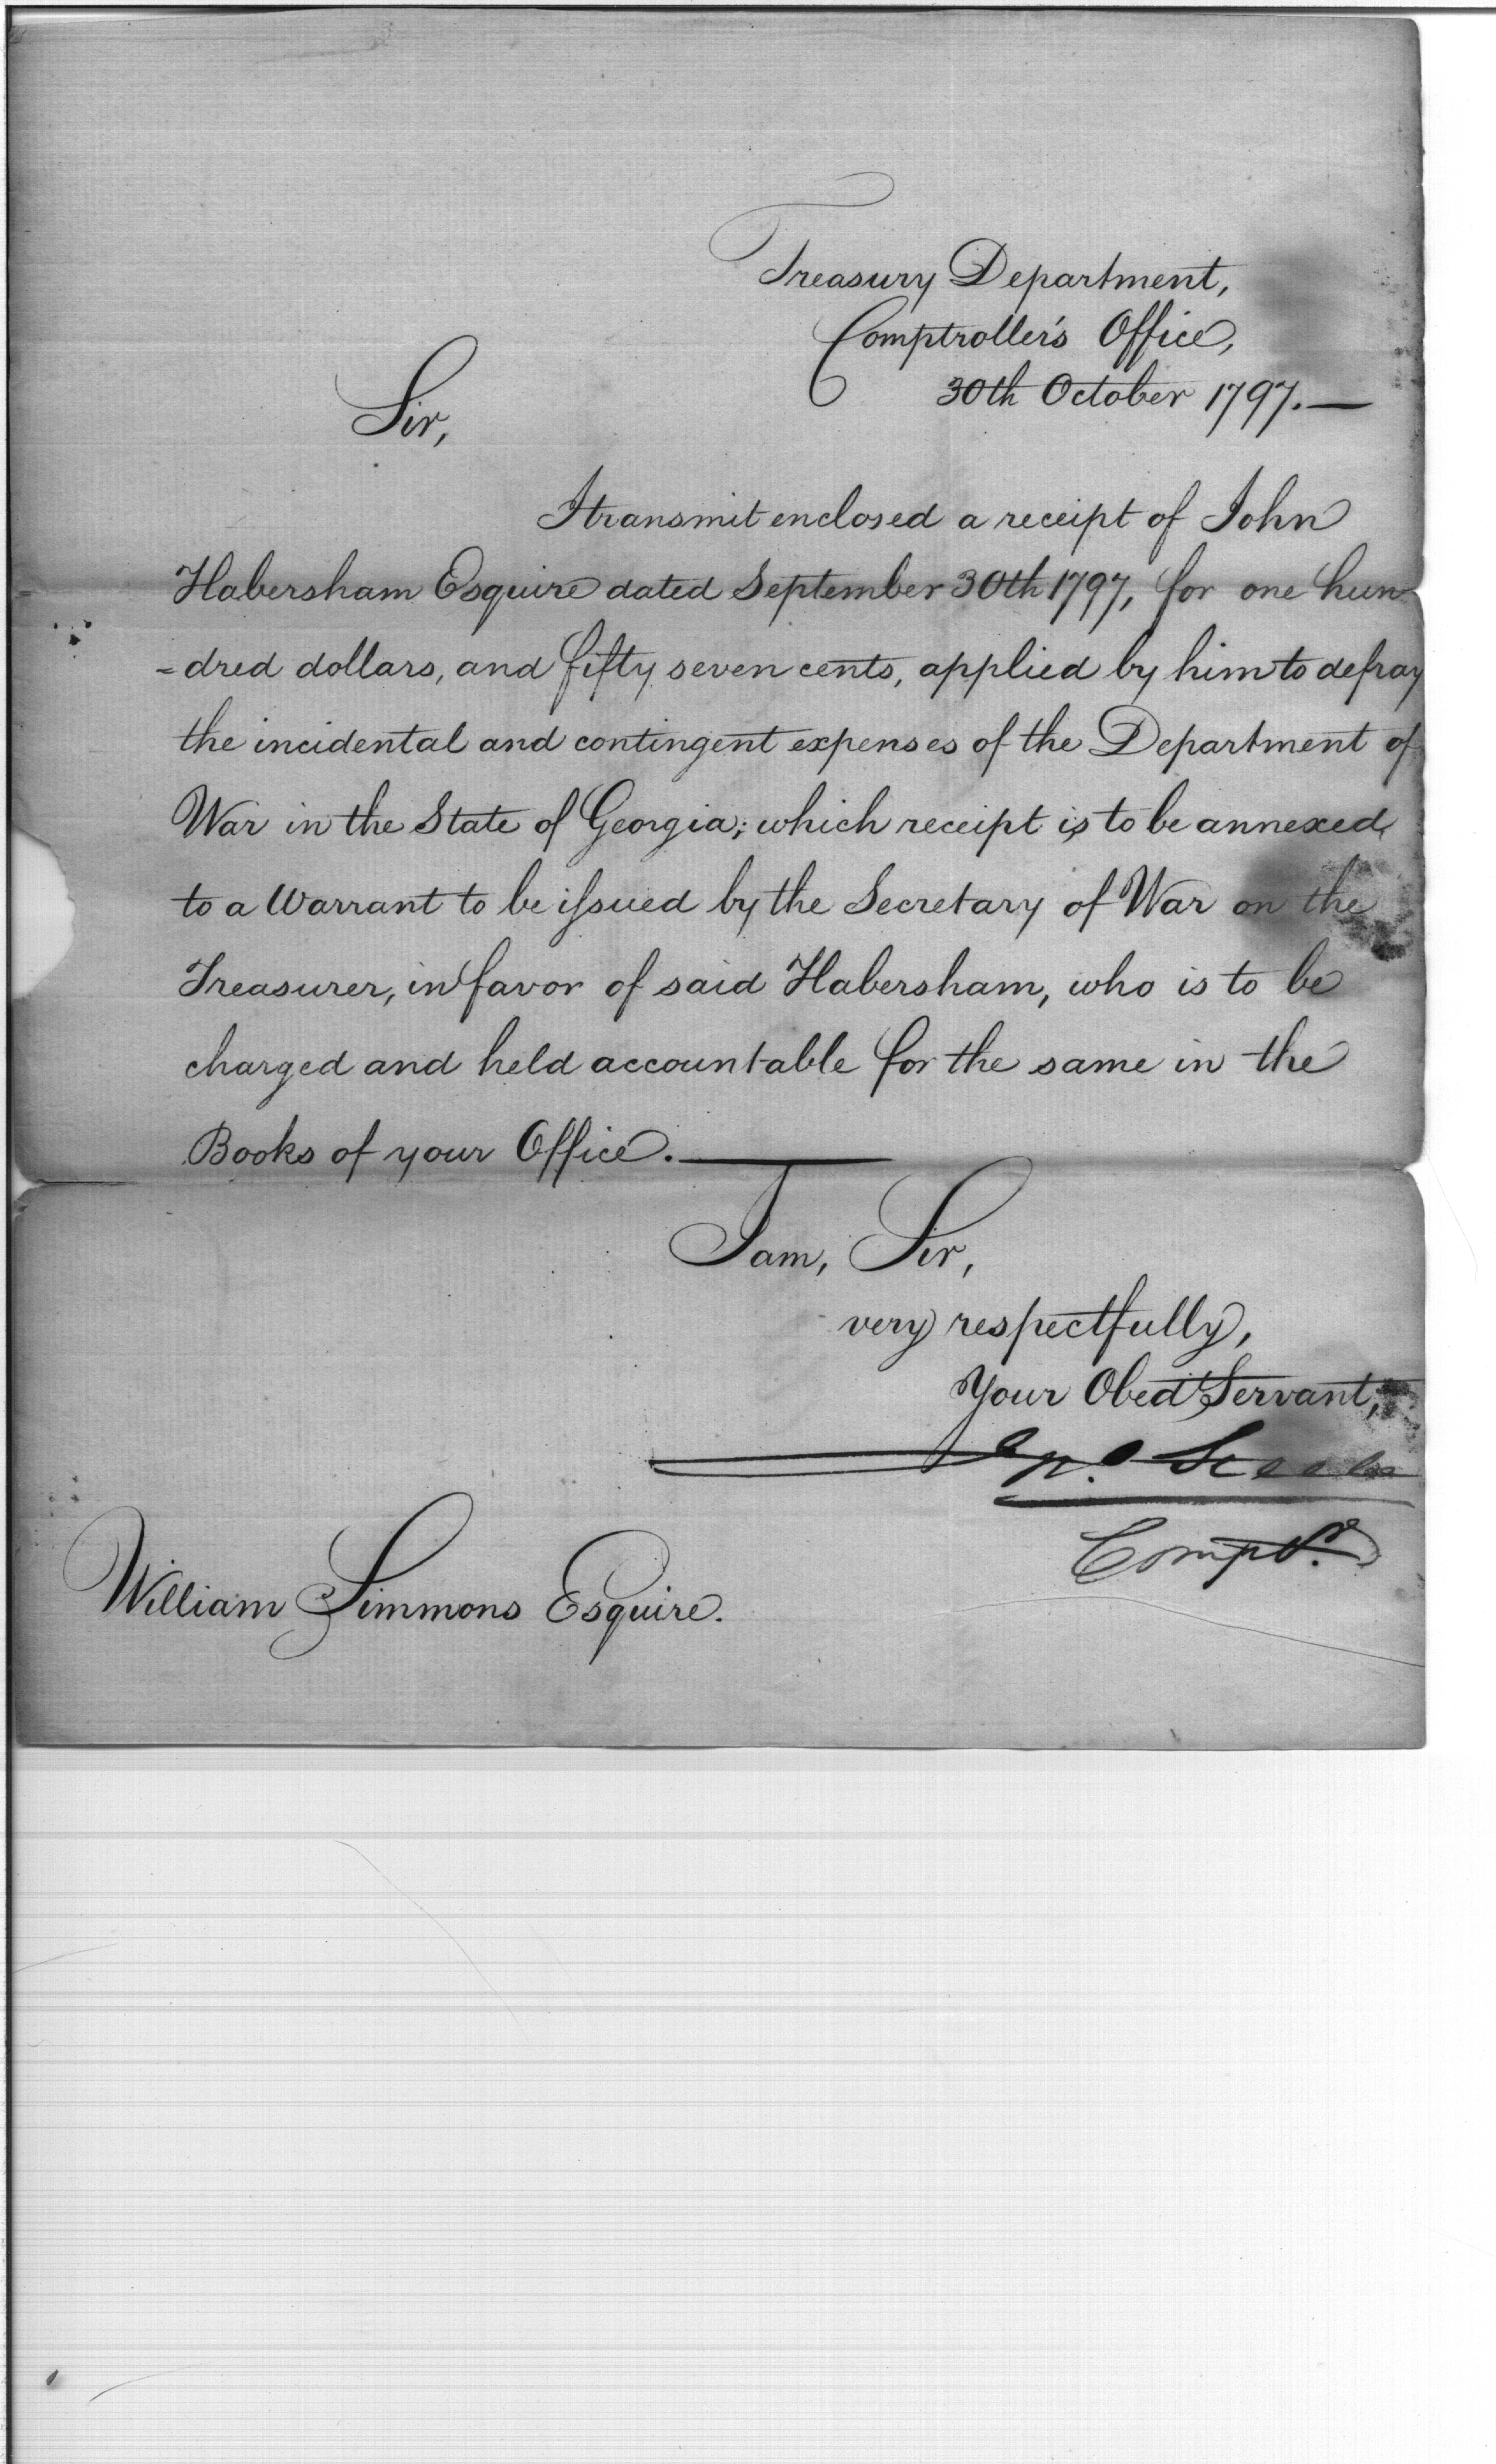 Treasury Department,
Comptroller's Office,
30th October 1797.—
Sir,
I transmit enclosed a receipt of John
Habersham Esquire dated September 30th 1797, for one hun
=dred dollars, and fifty seven cents, applied by him to defray
the incidental and contingent expenses of the Department of
War in the State of Georgia; which receipt is to be annexed,
to a Warrant to be issued by the Secretary of War on the
Treasurer, in favor of said Habersham, who is to be
charged and held accountable for the same in the
Books of your Office.—
I am, Sir,
very respectfully,
Your Obed Servant,
Jno. Steele
Comptr.
William Simmons Esquire.